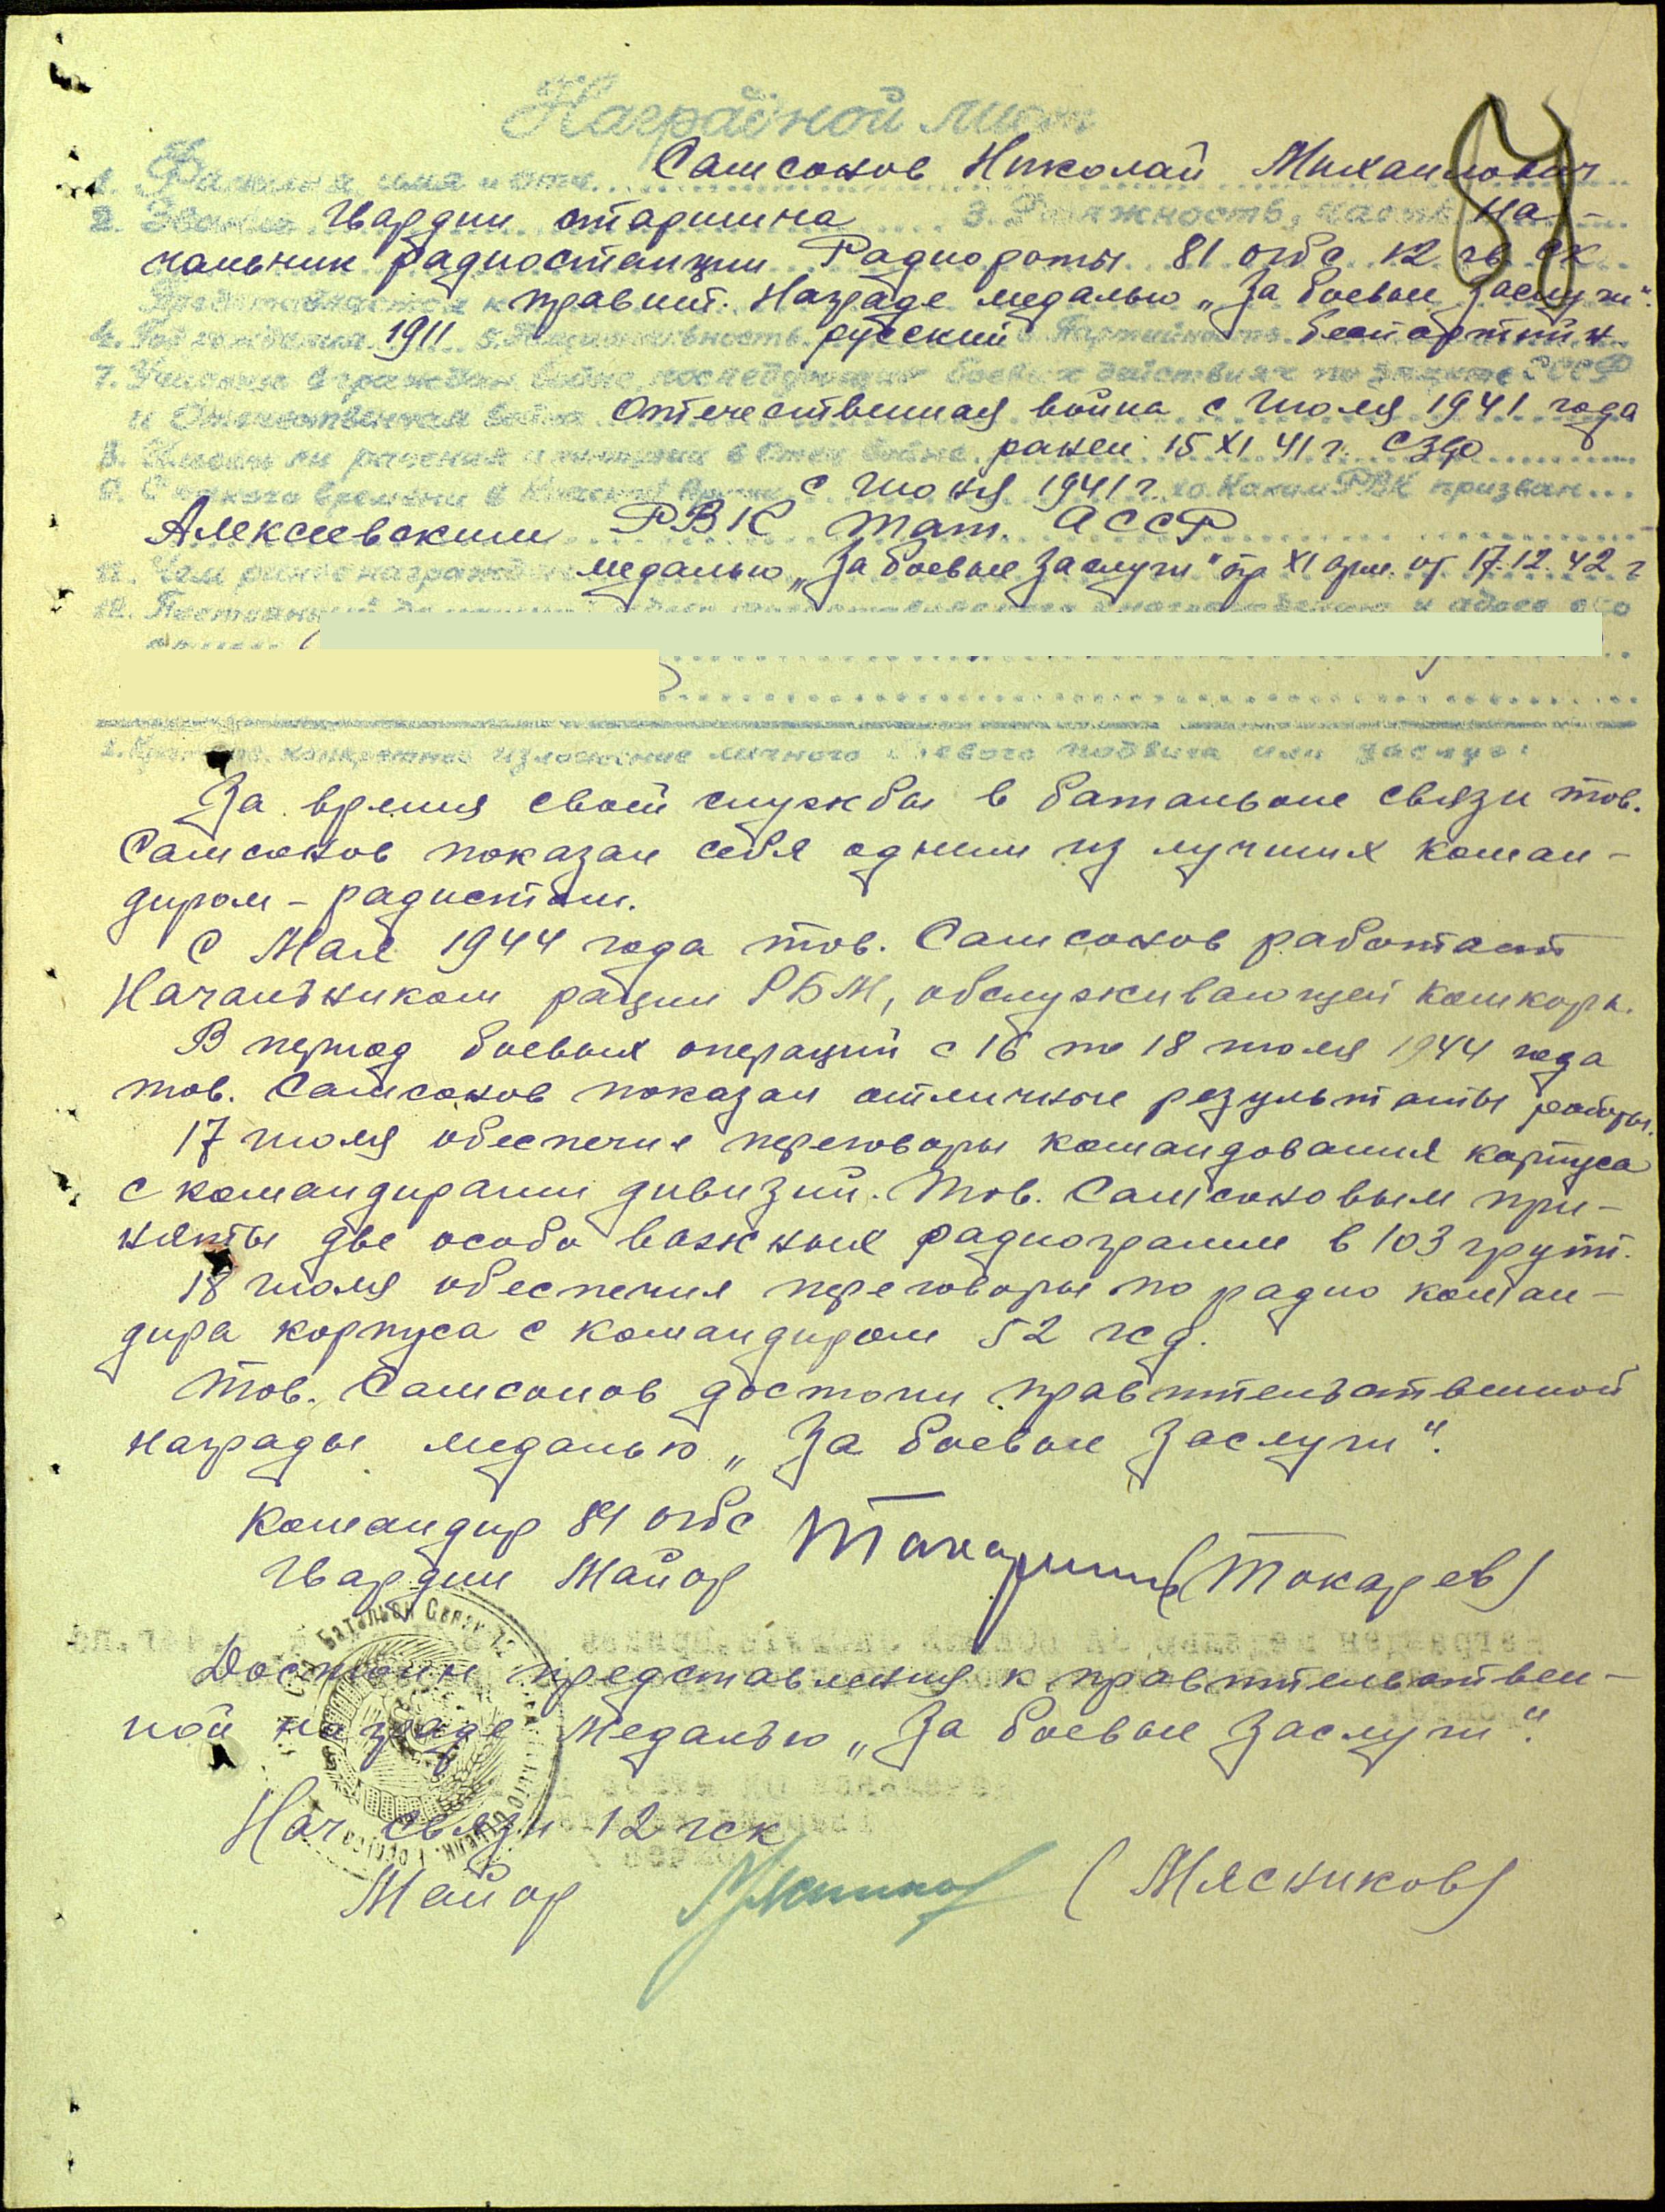 Наградной лист
1. Фамилия, имя и отч. Самсонов Николай Михайлович
2. Звание Гвардии старшина 3. Должность, часть На-
чальник радиостанции Радиороты 81 огбс 12 гв СК
Представляется к правит. Награде медалью „За боевые заслуги".
4. Год рождения 1911 5. Национальность русский 6. Партийность беспартийн
7. Участие в граждан. войне, последующих боевых действиях по защите СССР
и Отечественная война Отечественная война с Июля 1941 года
8. Имеет ли ранения и контузии в Отеч. войне. ранен 15 XI 41 г. СЗФ
9. С какого времени в Красной Армии с Июня 1941 г. 10. Каким РВК призван...
Алексеевским РВК Тат. АССР
11. Чем ранее награжден медалью „За боевые заслуги" пр XI арм. от 17.12.42 г
12. Постоянный домашний адрес и адрес его
1. Краткое, конкретное изложение личного боевого подвига или заслуг:
За время своей службы в батальоне связи тов.
Самсонов показал себя одним из лучших коман-
диром - радистом.
С Мая 1944 года тов. Самсонов работает
Начальником рации РБМ, обслуживающей комкора.
В период боевых операций с 16 по 18 июля 1944 года
тов. Самсонов показал отличные результаты работы.
17 июля обеспечил переговоры командования корпуса
с командирами дивизий. Тов. Самсоновым при-
няты две особо важных радиограмм в 103 групп.
18 июля обеспечил переговоры по радио коман-
дира корпуса с командиром 52 гсд.
Тов. Самсонов достоин правительственной
награды медалью „За боевые заслуги".
Командир 81 огбс
Гвардии Майор (Токарев)
Достоин представления к правительствен-
ной награде Медалью „За боевые заслуги".
Нач связи 12 гск
Майор (Мясников)